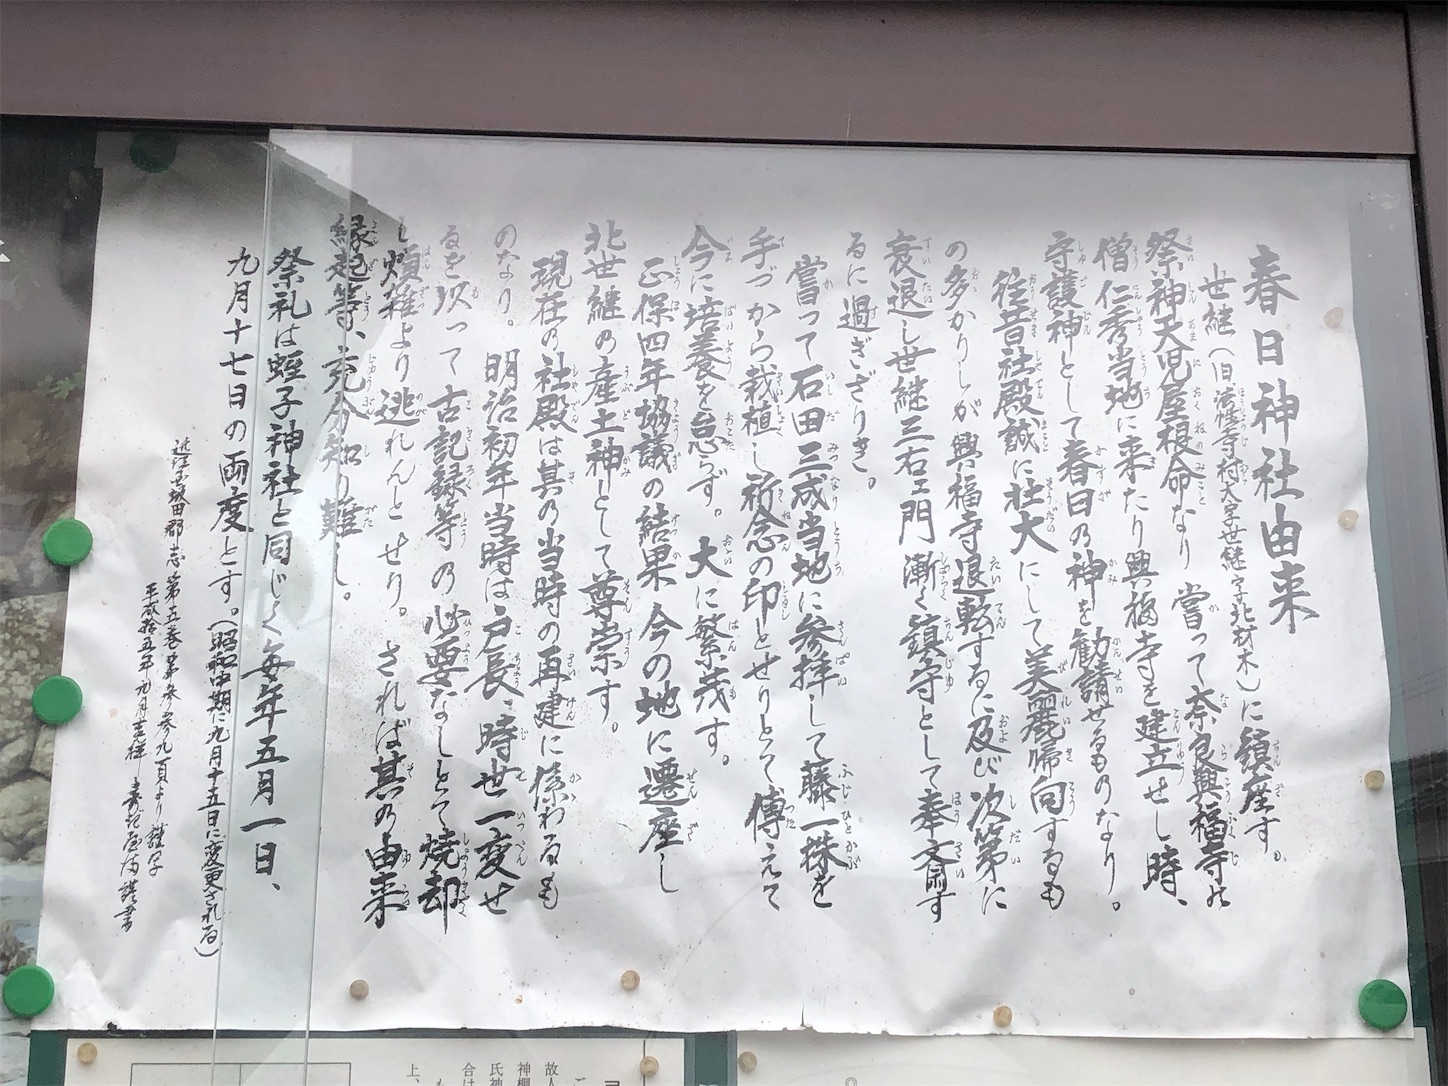 春日神社由来
世継（旧法性寺村大字世継字北材木）に鎮座す。
祭神天児屋根命なり　嘗って奈良興福寺の
僧仁秀当地に来たり興福寺を建立せし時、
守護神として春日の神を勧請せるものなり。
往昔社殿誠に壮大にして美麗帰向するも
の多かりしが興福寺退転するに及び次第に
衰退し世継三右ェ門　漸く鎮守として奉斎す
るに過ぎざりき。
嘗って石田三成当地に参拝して藤一株を
手づから栽植し祈念の印とせりとて傳えて
今に培養を怠らず。大に繁茂す。
正保四年協議の結果　今の地に遷座し
北世継の産土神として尊崇す。
現在の社殿は其の当時の再建に係わるも
のなり。　明治初年当時は戸長、時世一変せ
るを以って　古記録等の必要なしとて焼却
し煩雑より逃れんとせり。　されば其の由来
縁起等、充分知り難し。
祭礼は蛭子神社と同じく毎年五月一日、
九月十七日の両度とす。（昭和中期に九月十五日に変更される）
近江国坂田郡志第五巻第参参九頁より謹写
平成拾五年九月吉祥
故人
神棚
氏神
合は
上、